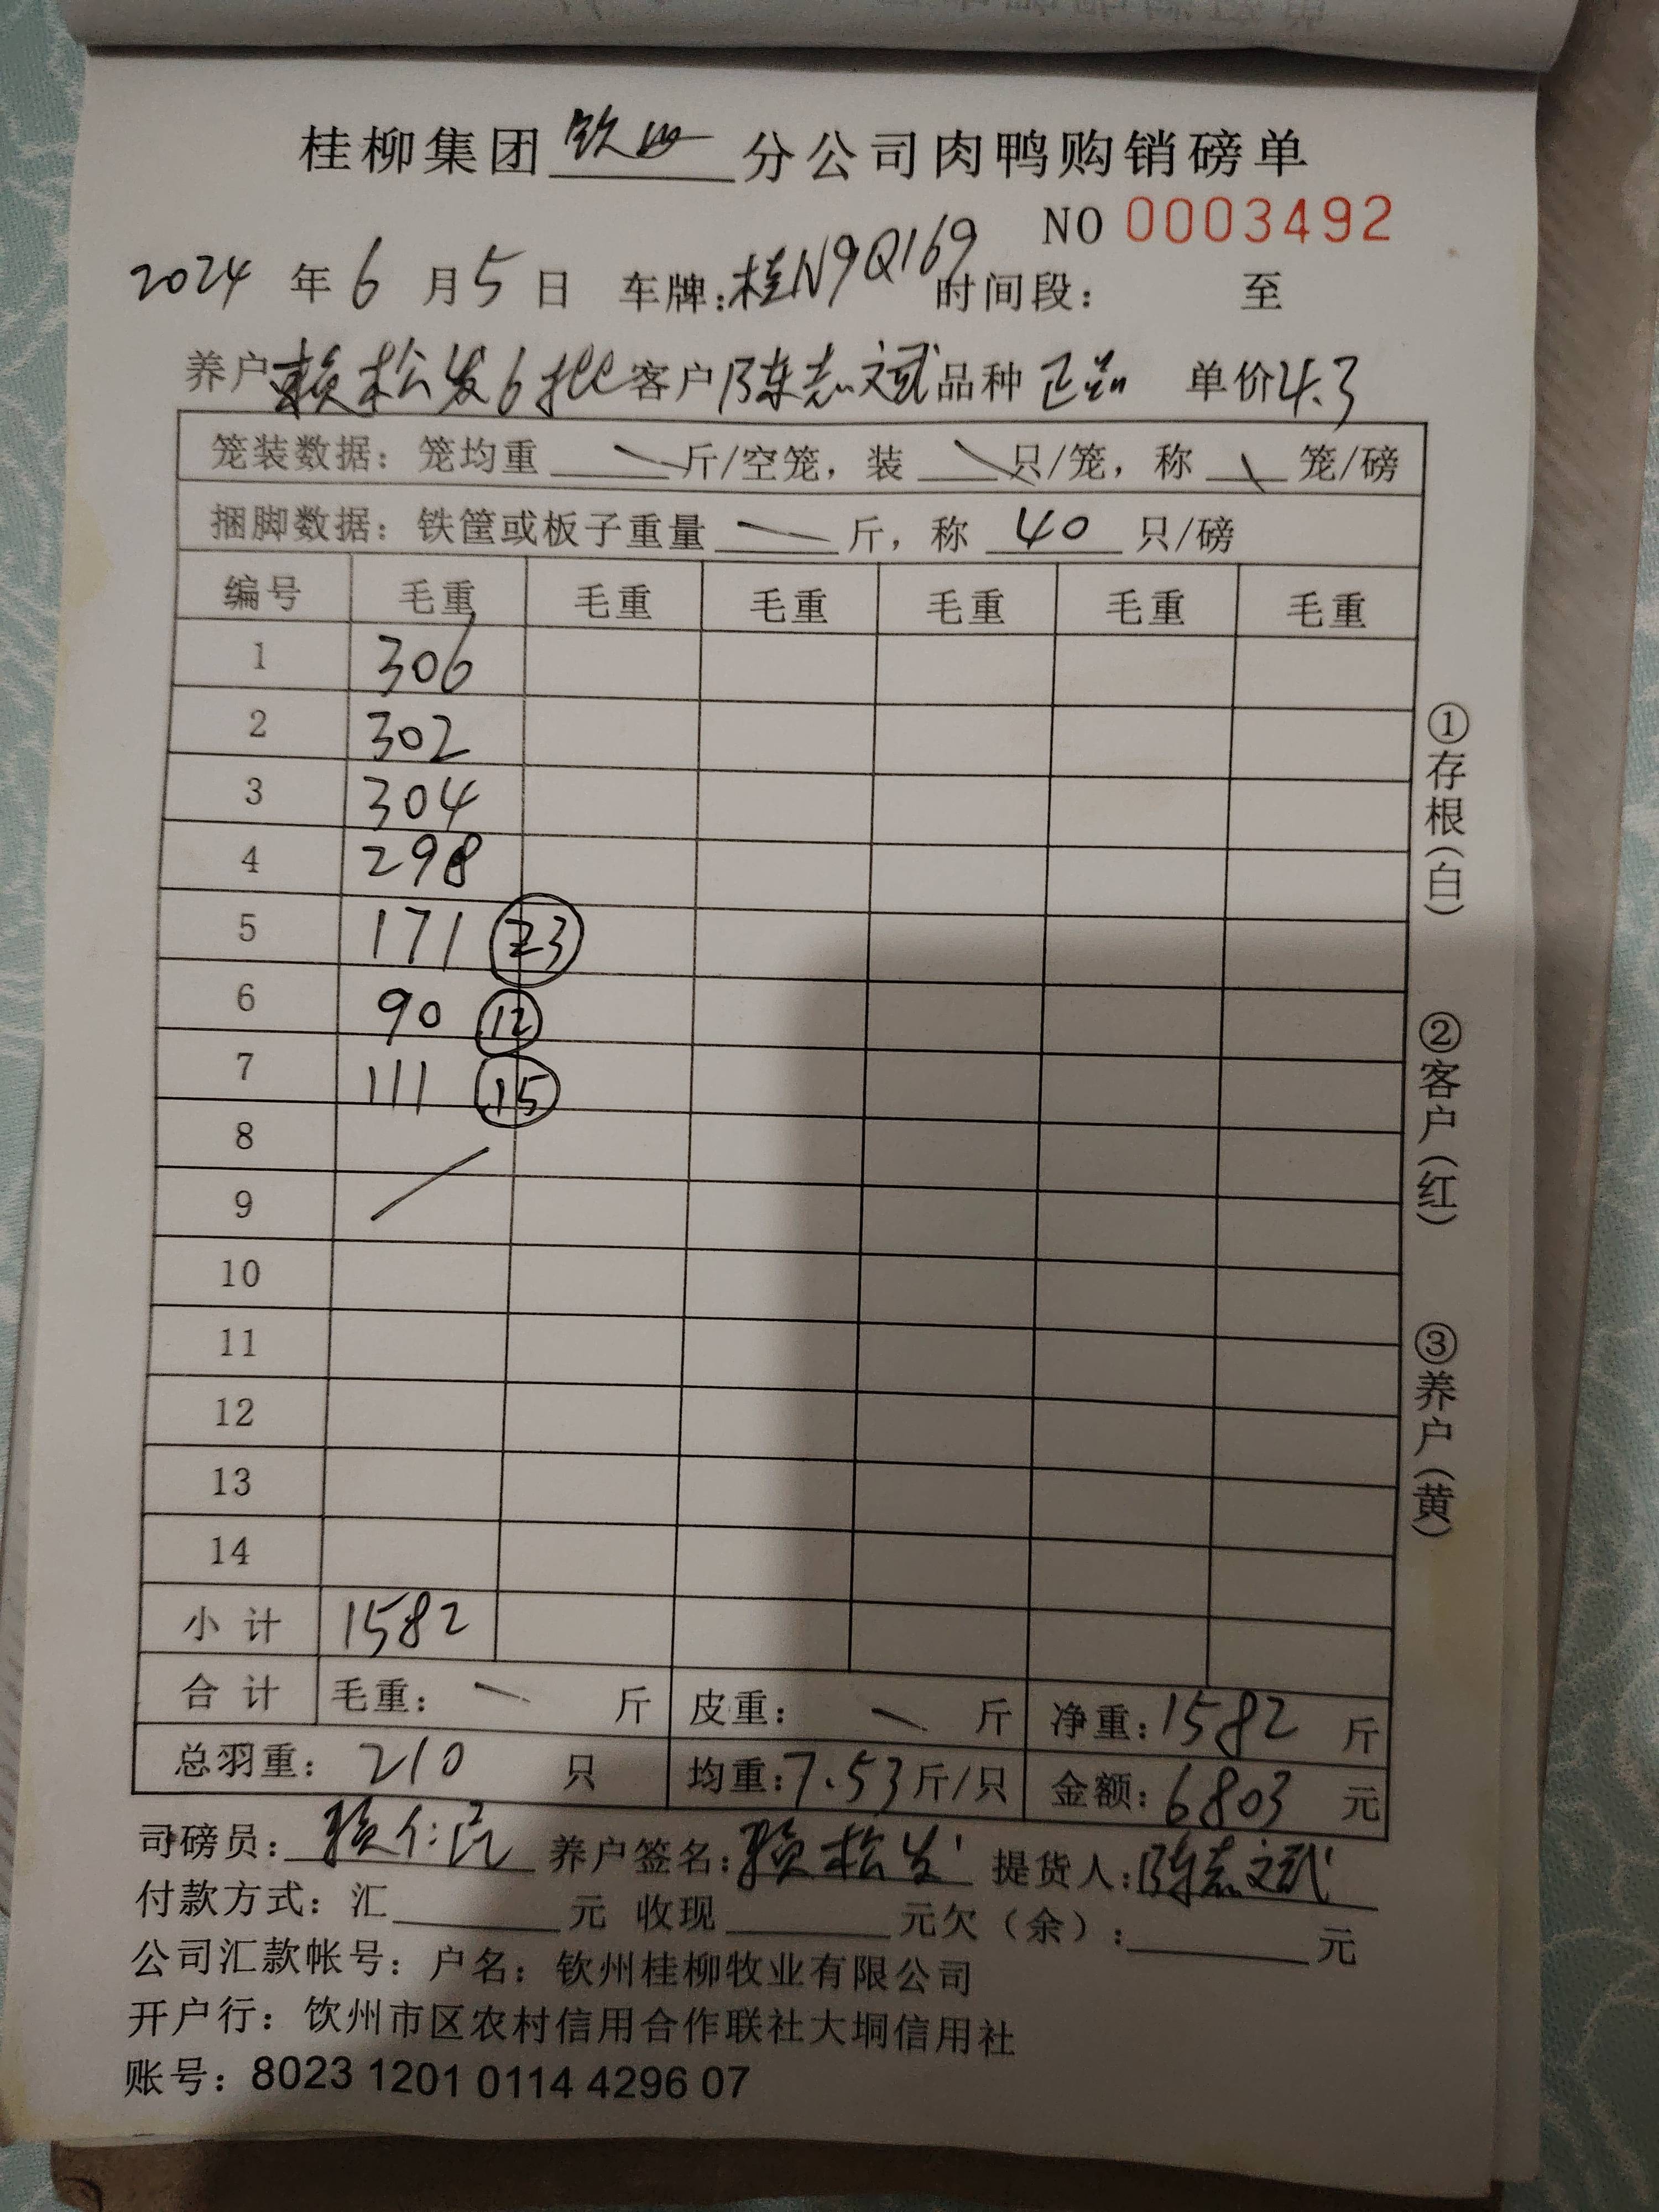 桂柳集团钦州分公司肉鸭购销磅单
NO 0003492
2024 年 6 月 5 日 车牌：桂N9Q169 时间段： 至
养户 赖松发6批 客户 陈志斌 品种 正品 单价 4.3
笼装数据：笼均重 \ 斤/空笼，装 \ 只/笼，称 \ 笼/磅
捆脚数据：铁筐或板子重量 \ 斤，称 40 只/磅
编号 毛重 毛重 毛重 毛重 毛重 毛重
1 306
2 302
3 304
4 298
5 171 23
6 90 12
7 111 15
8
9
10
11
12
13
14
小计 1582
合计 毛重： \ 斤 皮重： \ 斤 净重：1582 斤
总羽重： 210 只 均重：7.53斤/只 金额：6803 元
司磅员： 养户签名：赖松发 提货人：陈志斌
付款方式：汇 元 收现 元欠（余）： 元
公司汇款帐号：户名：钦州桂柳牧业有限公司
开户行：饮州市区农村信用合作联社大垌信用社
账号：8023 1201 0114 4296 07
①存根（白）
②客户（红）
③养户（黄）